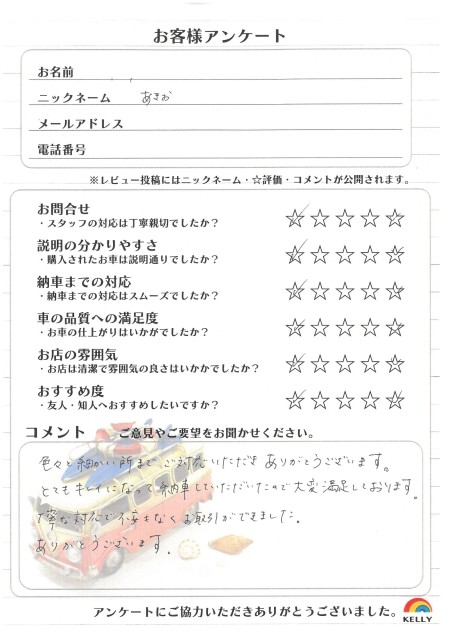 お客様アンケート
お名前
ニックネーム あきお
メールアドレス
電話番号
※レビュー投稿にはニックネーム・☆評価・コメントが公開されます。
お問合せ
・スタッフの対応は丁寧親切でしたか？
説明の分かりやすさ
・購入されたお車は説明通りでしたか？
納車までの対応
・納車までの対応はスムーズでしたか？
車の品質への満足度
・お車の仕上がりはいかがでしたか？
お店の雰囲気
・お店は清潔で雰囲気の良さはいかかでしたか？
おすすめ度
・友人・知人へおすすめしたいですか？
コメント ご意見やご要望をお聞かせください。
色々と細かい所までご対応いただき ありがとうございます。
とてもキレイになって納車していただいたので大変満足しております。
丁寧な対応で不安もなくお取引ができました。
ありがとうございます。
アンケートにご協力いただきありがとうございました。
KELLY